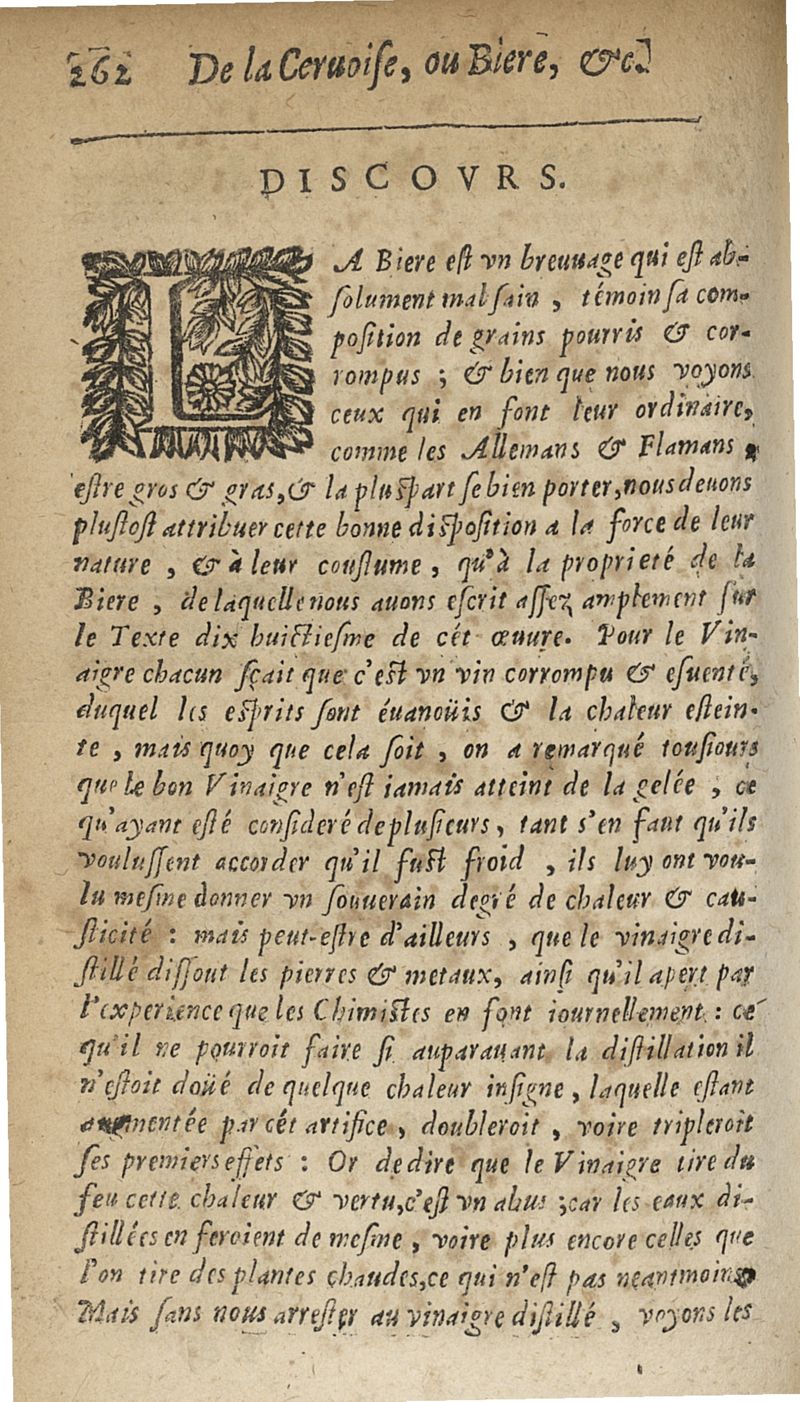 262 De la Ceruoise, ou Biere, &c.
DISCOVRS.
LA Biere est vn breuuage qui est ab-
solument mal sain, témoin sa com-
position de grains pourris & cor-
rompus ; & bien que nous voyons
ceux qui en font leur ordinaire,
comme les Allemans & Flamans,
estre gros & gras, & la pluspart se bien porter, nous deuons
plustost attribuer cette bonne disposition a la force de leur
nature, & à leur coustume, qu'à la proprieté de la
Biere, de laquelle nous auons escrit assez amplement sur
le Texte dix huictiesme de cét œuure. Pour le Vin-
aigre chacun sçait que c'est vn vin corrompu & esuenté,
duquel les esprits sont éuanoüis & la chaleur estein-
te, mais quoy que cela soit, on a remarqué tousiours
que le bon Vinaigre n'est iamais atteint de la gelée, ce
qu'ayant esté consideré de plusieurs, tant s'en faut qu'ils
voulussent accorder qu'il fust froid, ils luy ont vou-
lu mesme donner vn souuerain degré de chaleur & cau-
sticité : mais peut-estre d'ailleurs, que le vinaigre di-
stillé dissout les pierres & metaux, ainsi qu'il apert par
l'experience que les Chimistes en font iournellement : ce
qu'il ne pourroit faire si auparauant la distillation il
n'estoit doüé de quelque chaleur insigne, laquelle estant
augmentée par cét artifice, doubleroit, voire tripleroit
ses premiers effets : Or de dire que le Vinaigre tire du
feu cette chaleur & vertu, c'est vn abus ; car les eaux di-
stillées en feroient de mesme, voire plus encore celles que
l'on tire des plantes chaudes, ce qui n'est pas neantmoins
Mais sans nous arrester au vinaigre distillé, voyons les